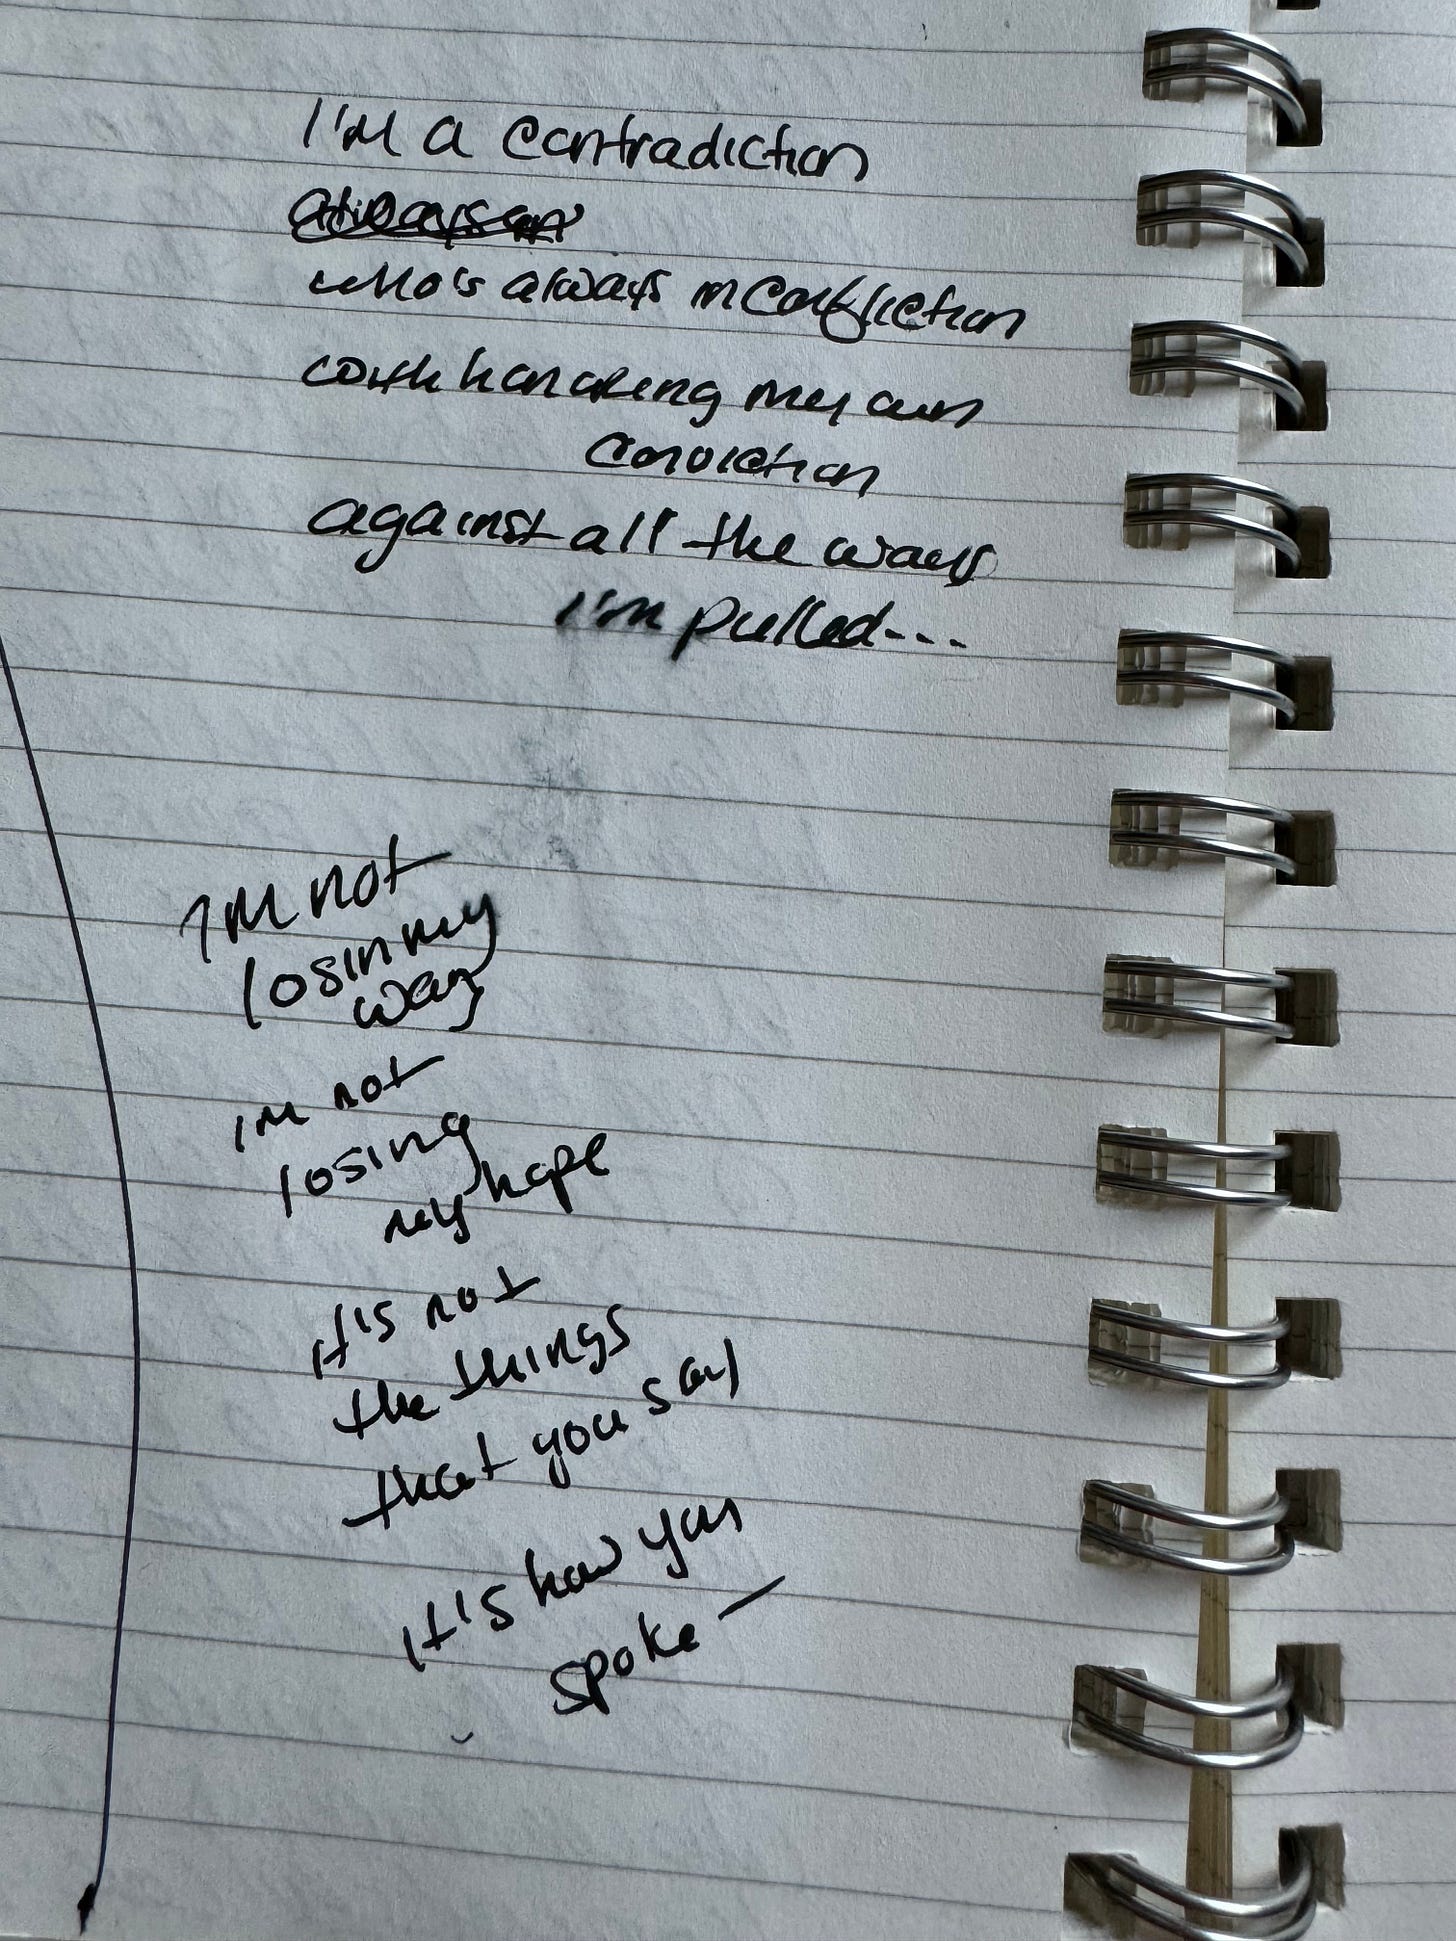 I'm a contradiction
always
who's always in confliction
with honoring my own
conviction
against all the ways
I'm pulled...
I'm not
losin my
way
I'm not
losing
my hope
it's not
the things
that you say
it's how you
spoke —